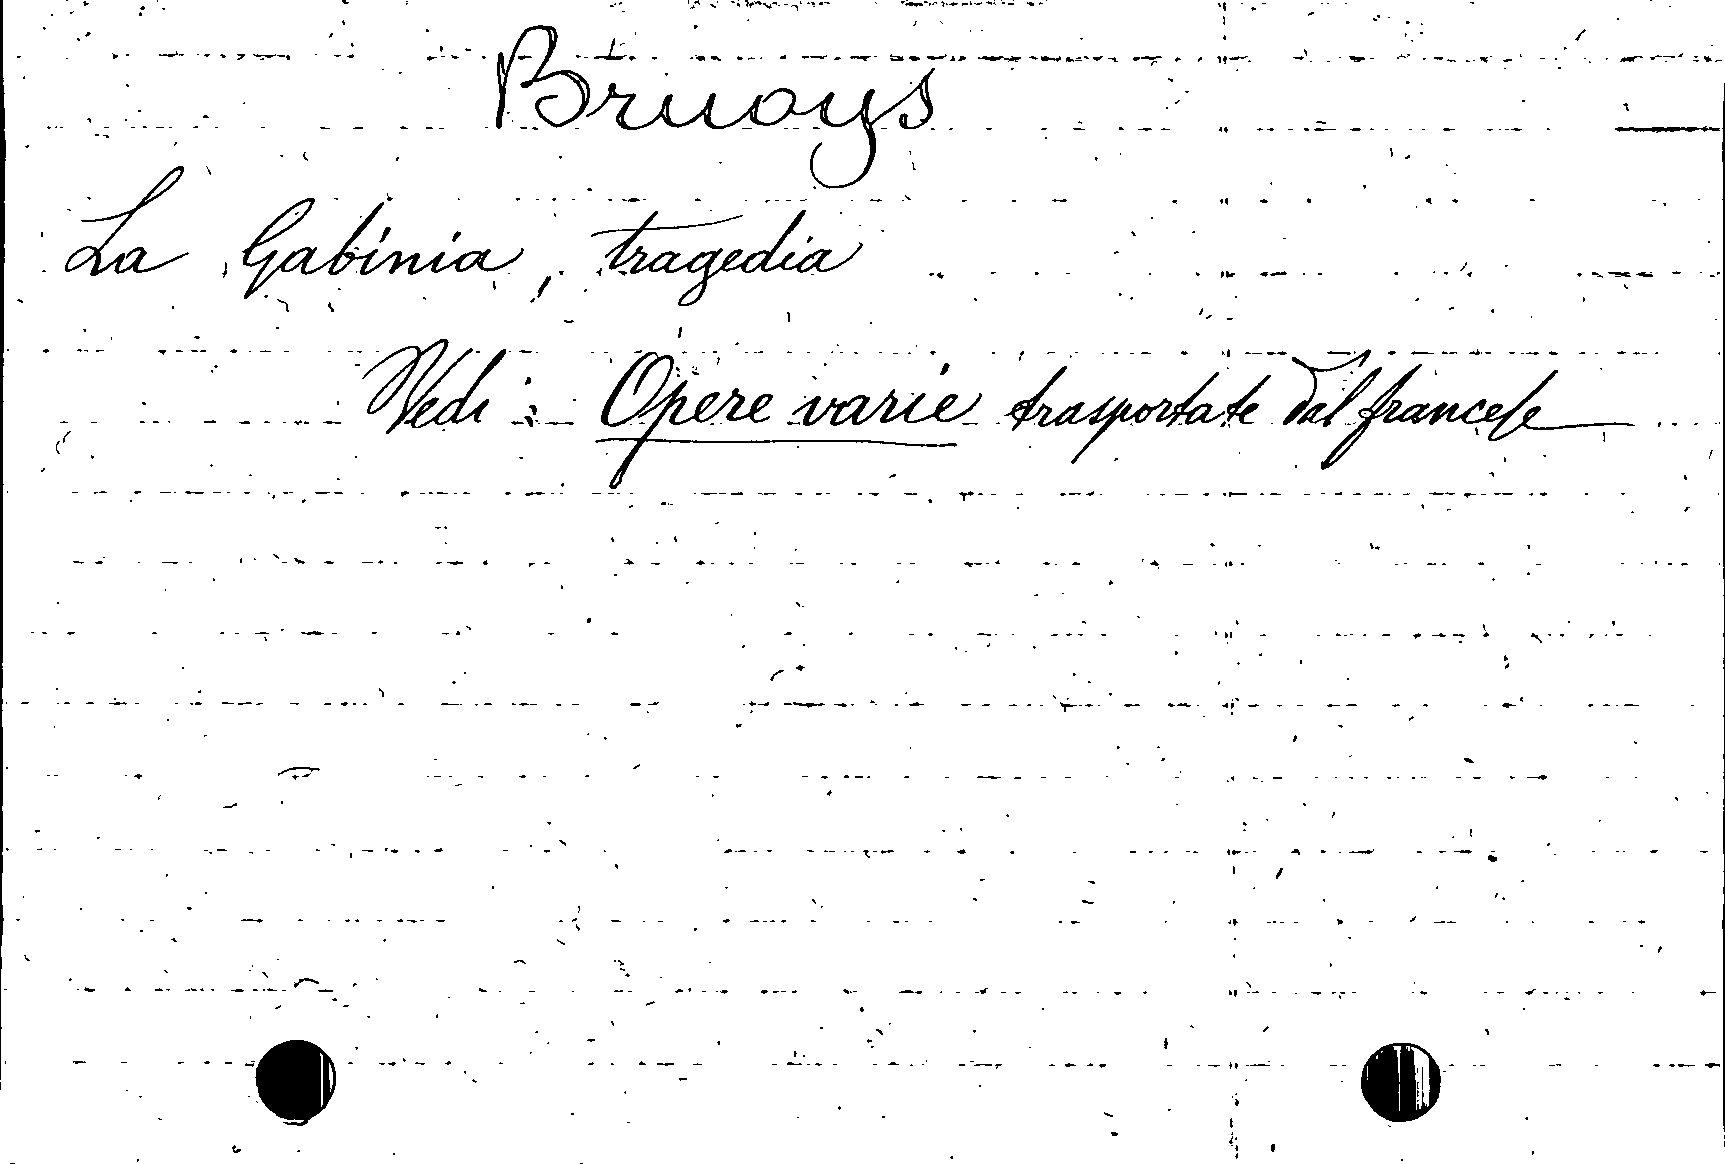 Bruoys
La Gabinia, tragedia
Vedi: Opere varie trasportate dal francese